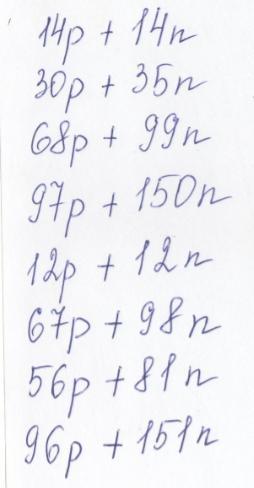 14p + 14n
30p + 35n
68p + 99n
97p + 150n
12p + 12n
67p + 98n
56p + 81n
96p + 151n